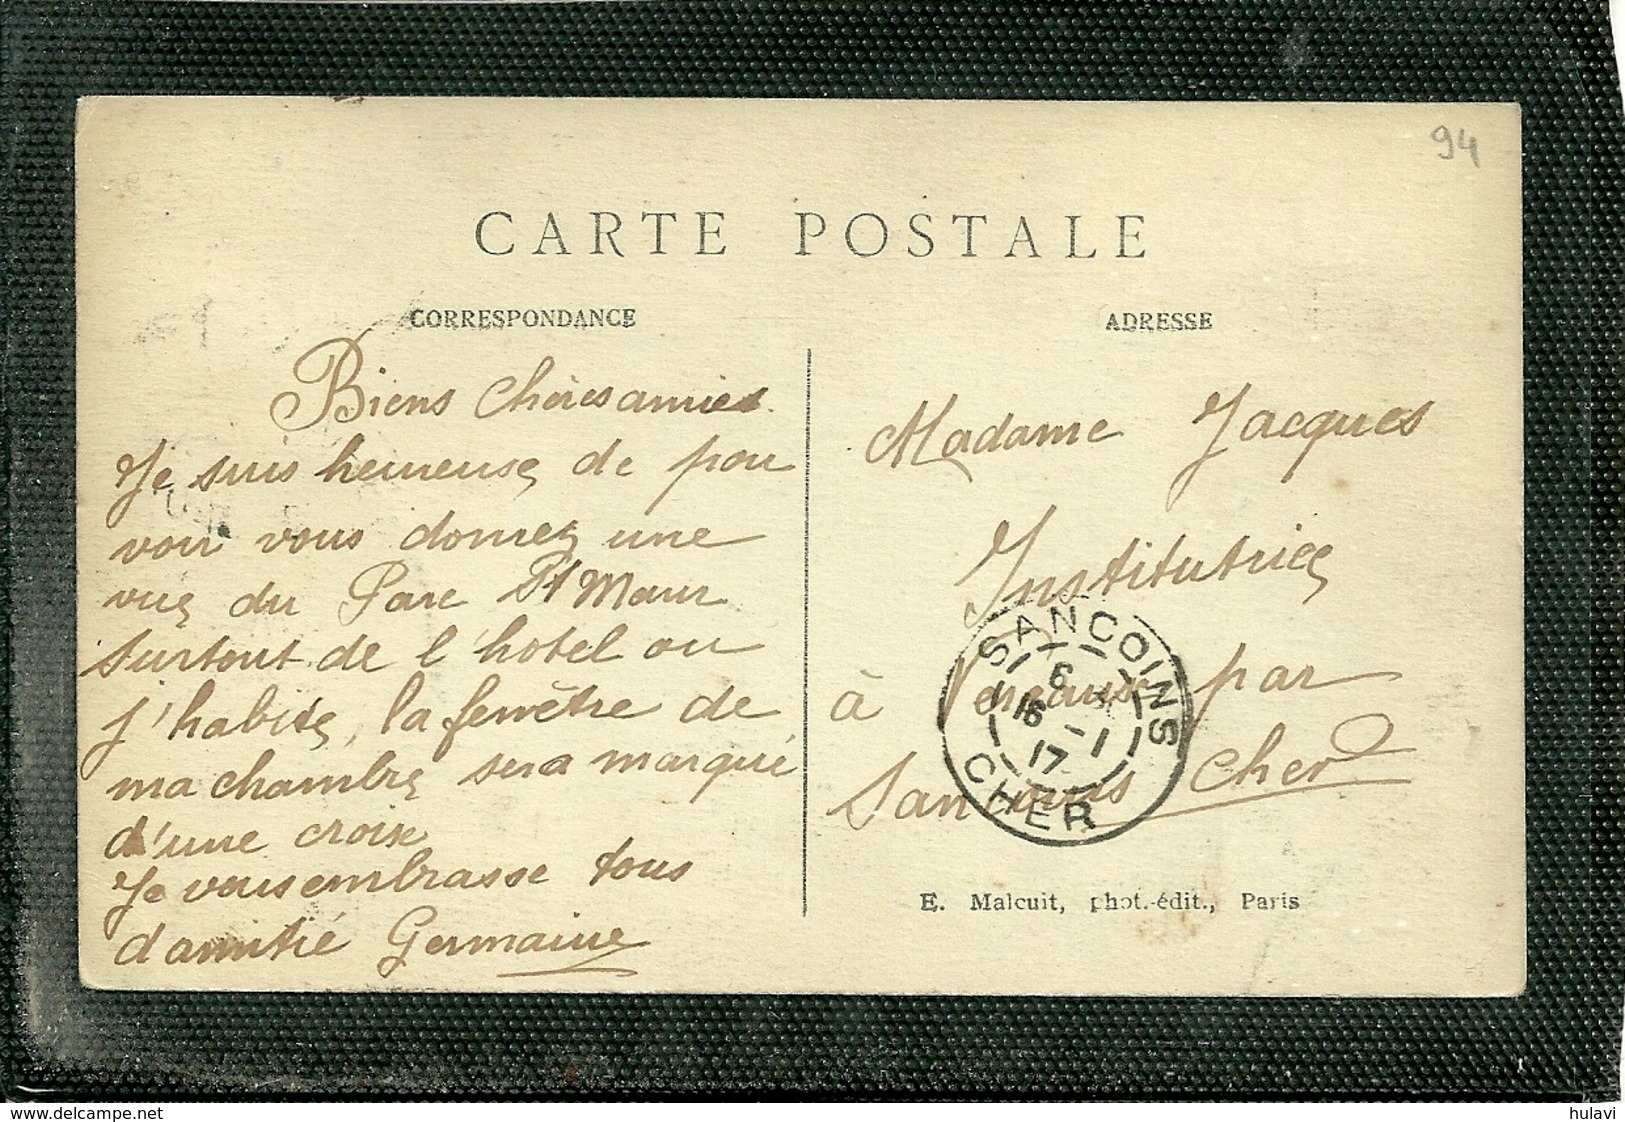 94
CARTE POSTALE
CORRESPONDANCE
Biens Chères amies.
Je suis heureuse de pou
voir vous donnez une
vue du Parc St Maur
surtout de l'hotel ou
j'habite, la fenêtre de
ma chambre sera marqué
d'une croix
Je vous embrasse tous
d'amitié Germaine
ADRESSE
Madame Jacques
Institutrice
à par
Sancoins Cher
SANCOINS
6
16 - 1
17
CHER
E. Malcuit, phot.-édit., Paris
hulavi
delcampe.net